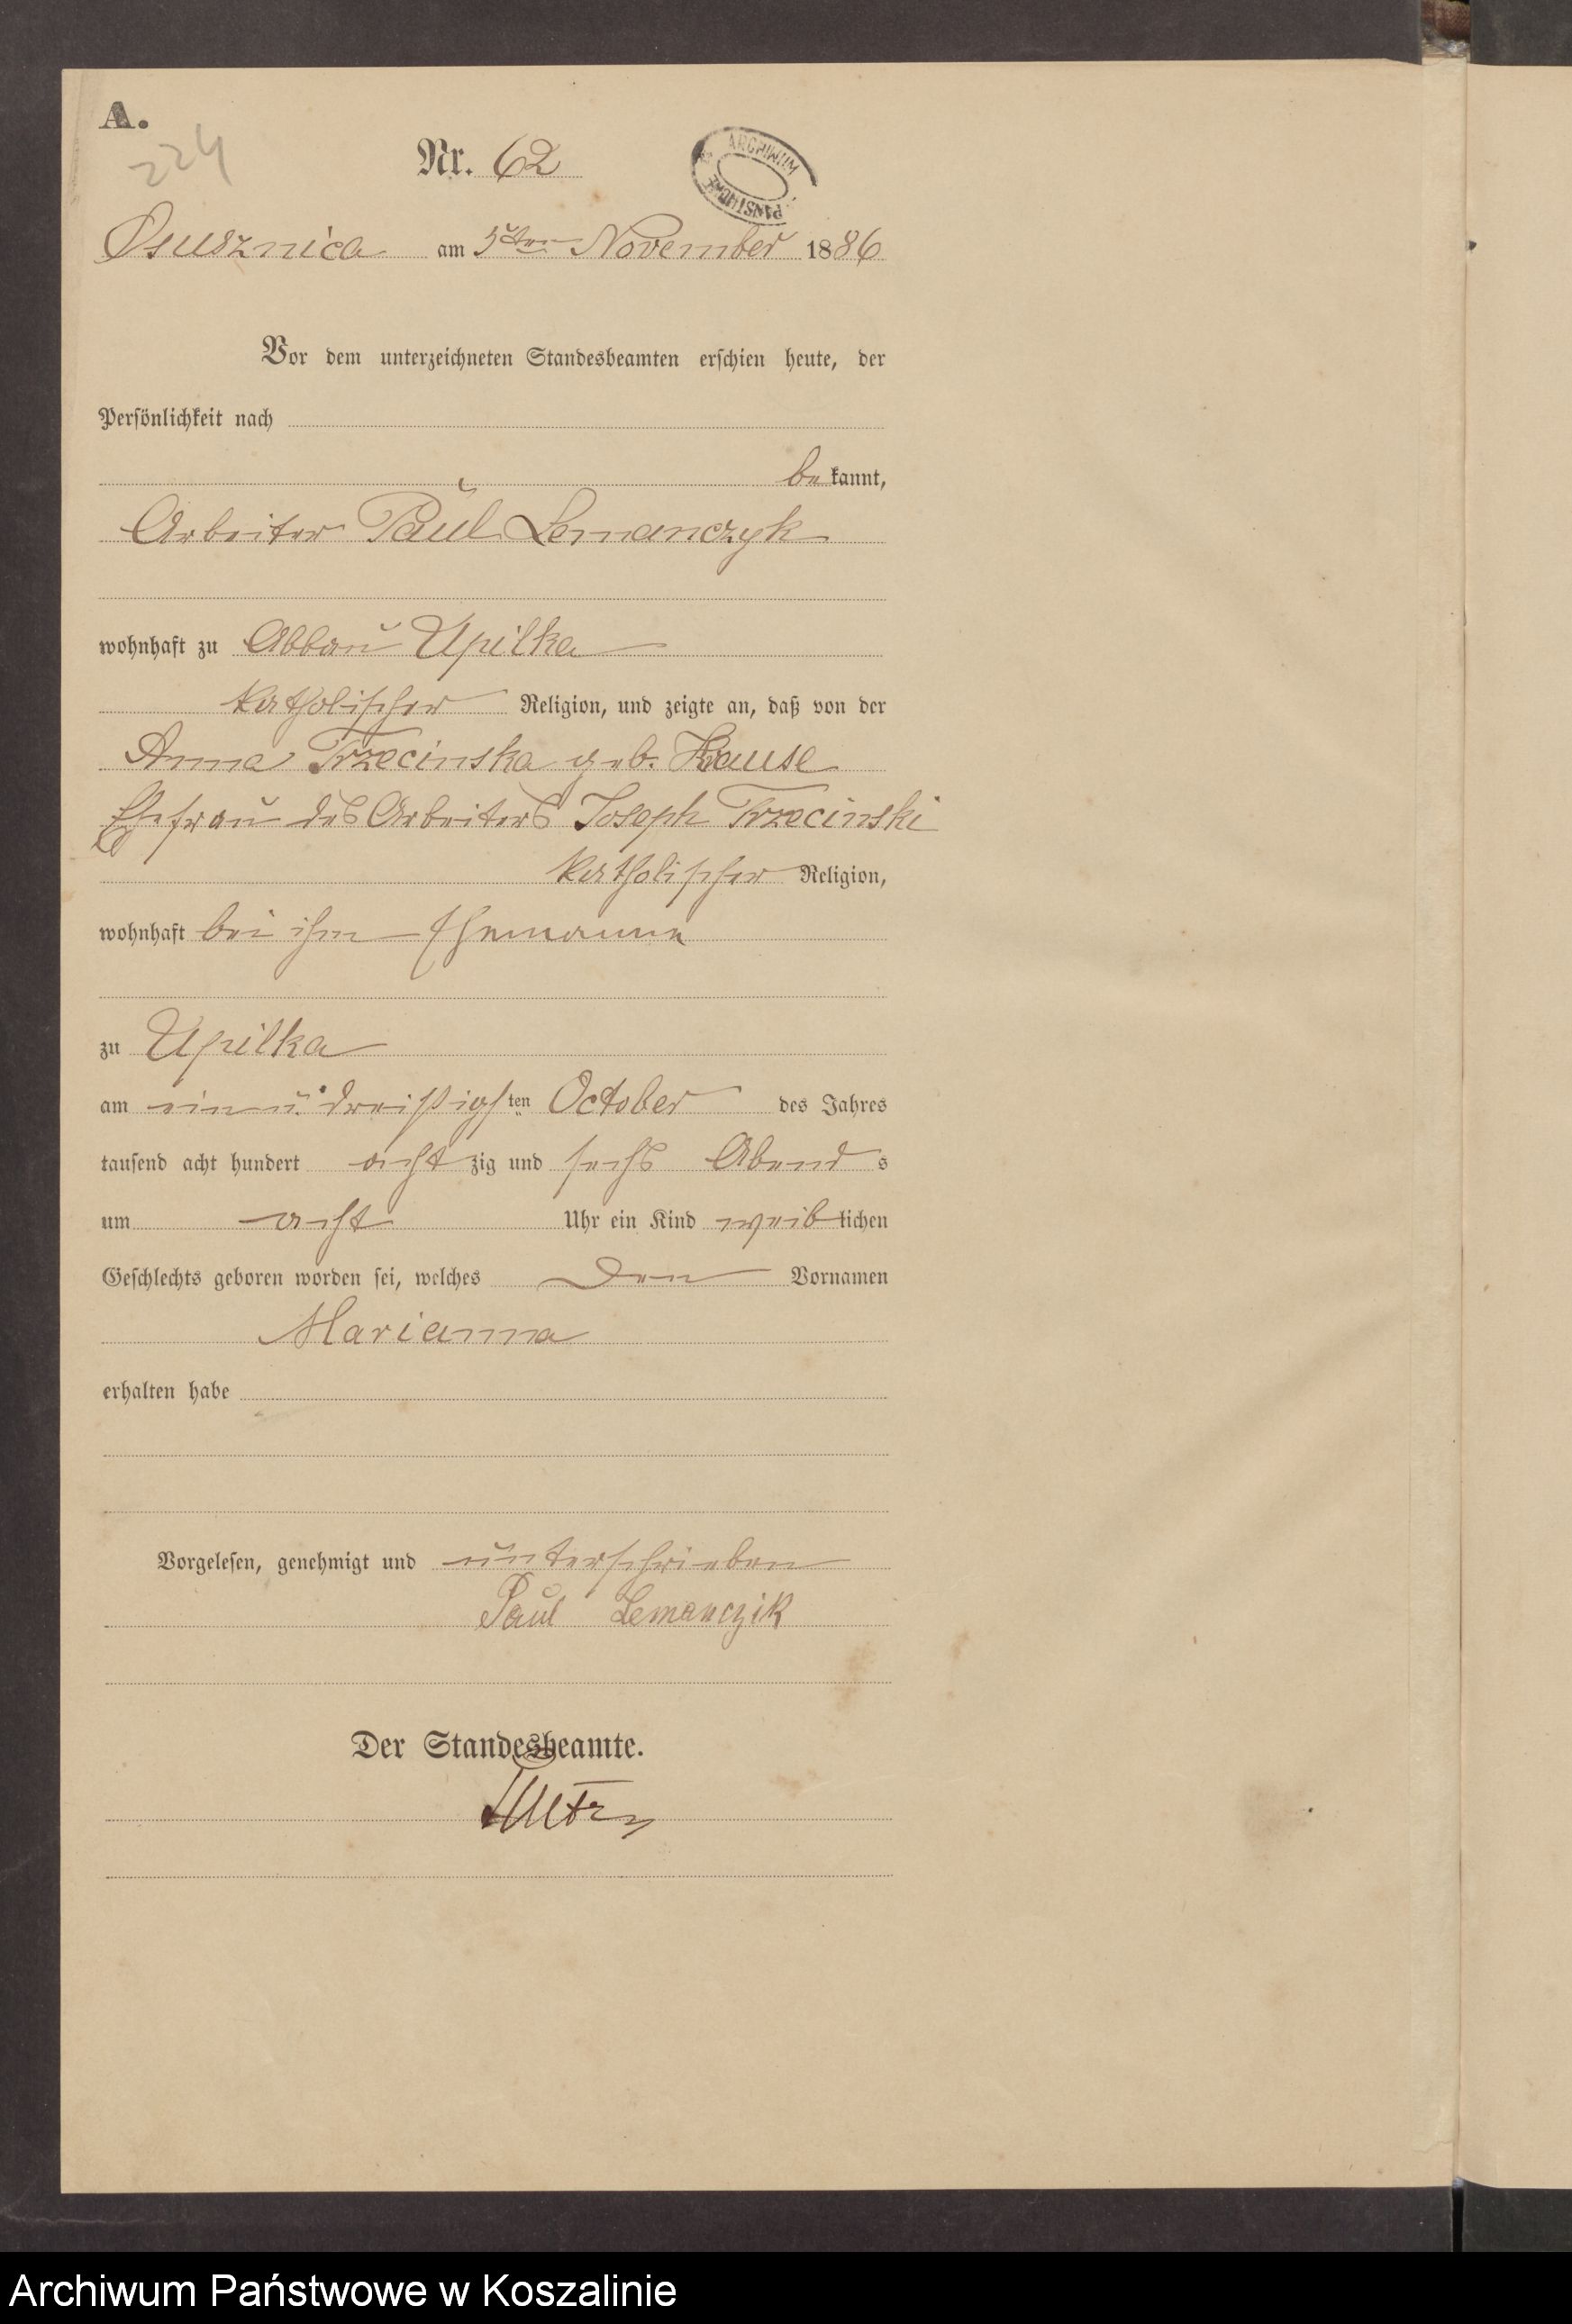 A.
224
Nr. 62
ARCHIWUM
PAŃSTWOWE
Osusznica am 5ten November 1886
Vor dem unterzeichneten Standesbeamten erschien heute, der
Persönlichkeit nach
bekannt,
Arbeiter Paul Lemanczyk
wohnhaft zu Abbau Upilka
katholischer Religion, und zeigte an, daß von der
Anna Trzecinska geb. Krause
Ehefrau des Arbeiters Joseph Trzecinski
katholischer Religion,
wohnhaft bei ihm Ehemanne
zu Upilka
am ein u. dreißigsten October des Jahres
tausend acht hundert achtzig und sechs Abends
um acht Uhr ein Kind weiblichen
Geschlechts geboren worden sei, welches den Vornamen
Marianna
erhalten habe
Vorgelesen, genehmigt und unterschrieben
Paul Lemanczik
Der Standesbeamte.
Archiwum Państwowe w Koszalinie